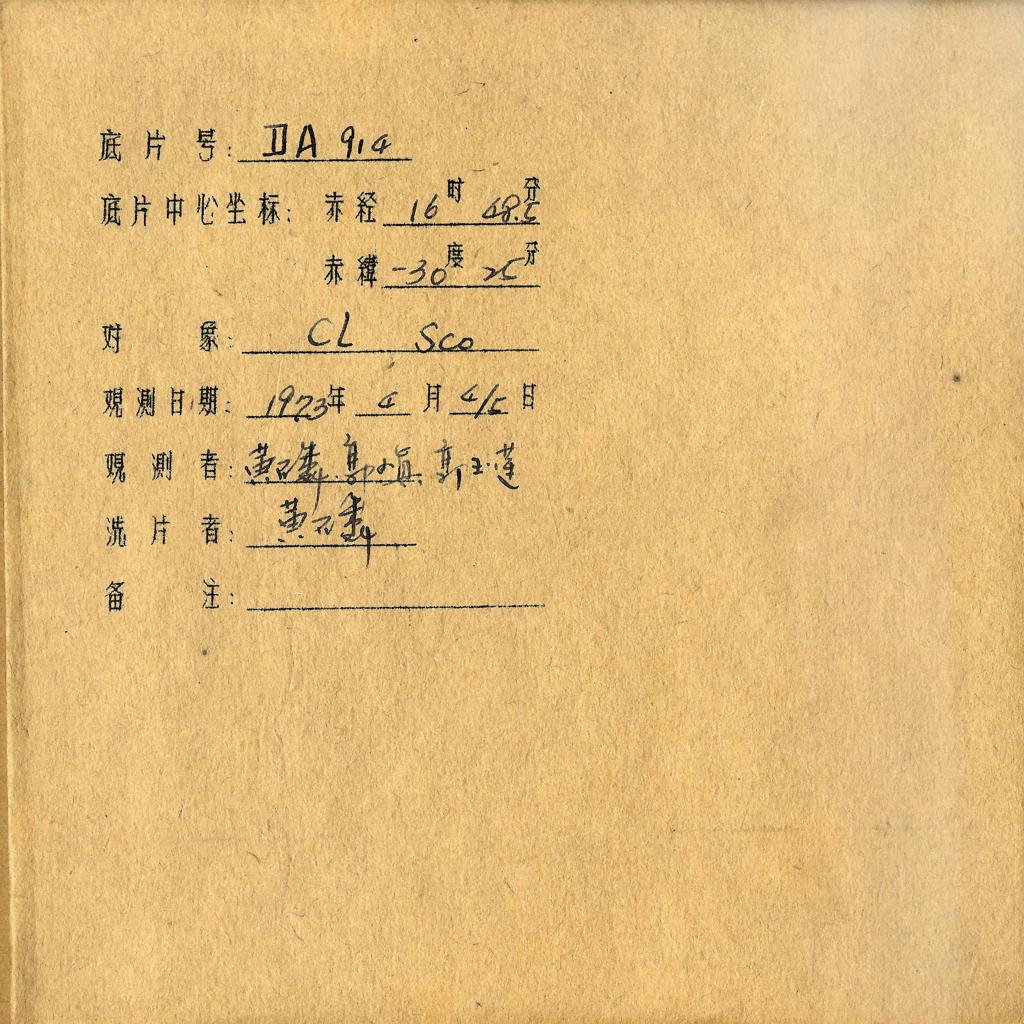 底片号: IIA 914
底片中心坐标: 赤经 16时 48.5分
赤纬 -30度 25分
对象: CL Sco
观测日期: 1973年 4月 4/5日
观测者: 黄石磷 郭 郭玉莲
洗片者: 黄石磷
备注: